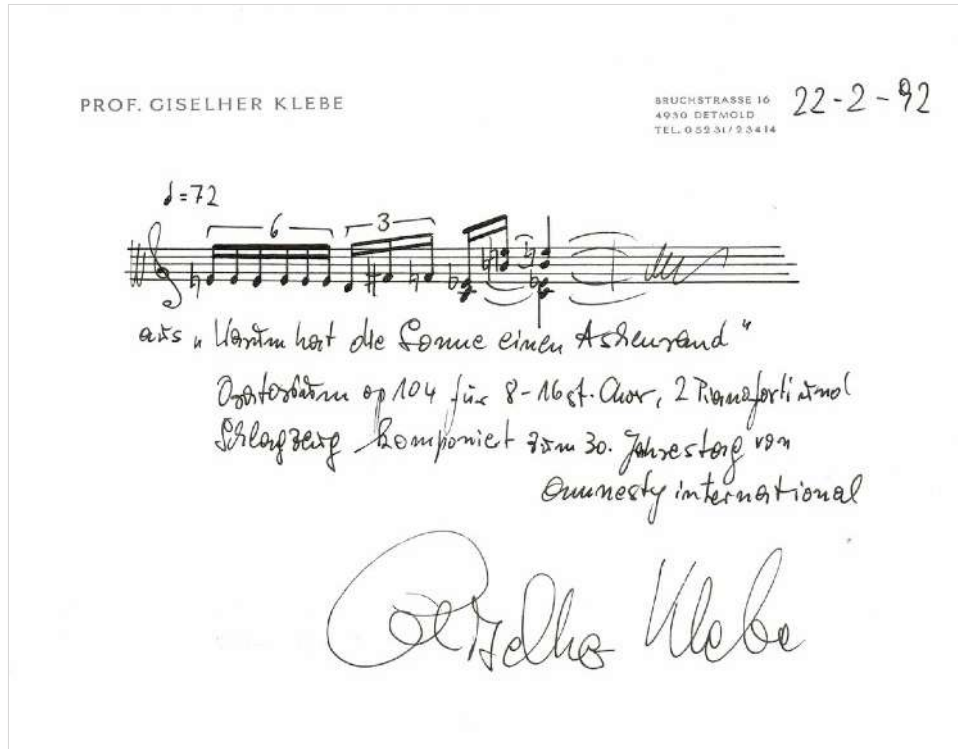 PROF. GISELHER KLEBE
BRUCHSTRASSE 16
4930 DETMOLD
TEL. 05231/23414
22-2-92
♩=72
6
3
aus „Warum hat die Sonne einen Aschenrand"
Oratorium op 104 für 8-16st. Chor, 2 Pianoforti und
Schlagzeug komponiert zum 30. Jahrestag von
amnesty international
Giselher Klebe